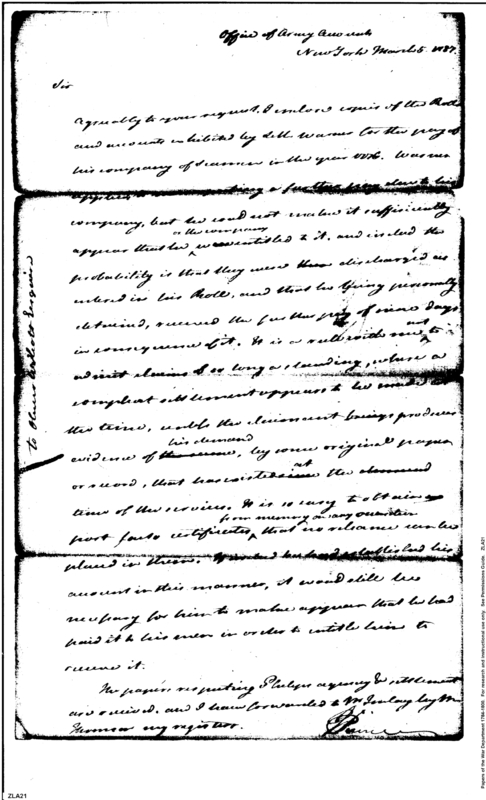 Office of Army Accounts
New York March 5. 1787
Sir
Agreeably to your request, I enclose copies of the Rolls
and accounts exhibited by Seth Warner for the pay of
his company of Seamen in the year 1776. Warner
applied to me a further pay due to his
company, but he could not make it sufficiently
or the company
appear that he was entitled to it. and indeed the
probability is that they were discharged as
entered in his Roll, and that he being personally
detained, received the further pay of nine days
in consequence of it. It is a rule with me, not to
admit claims of so long a standing, where a
compleat settlement appears to be made at
the time, unless the claimant brings produces
his demand
evidence of the same, by some original paper
or record, that has existed at the
time of the services. It is so easy to obtain
from memory
post facto certificates, that no reliance can be
placed in them. If indeed he had established his
account in this manner, it would still be
necessary for him to make appear that he had
paid it to his men in order to entitle him to
receive it.
The papers respecting Phelps agency & settlement
are received, and I have forwarded to Mr Finlay by Mr
my register.
to Oliver Wolcott Esquire
ZLA21
Papers of the War Department 1784-1800. For research and instructional use only. See Permissions Guide. ZLA21